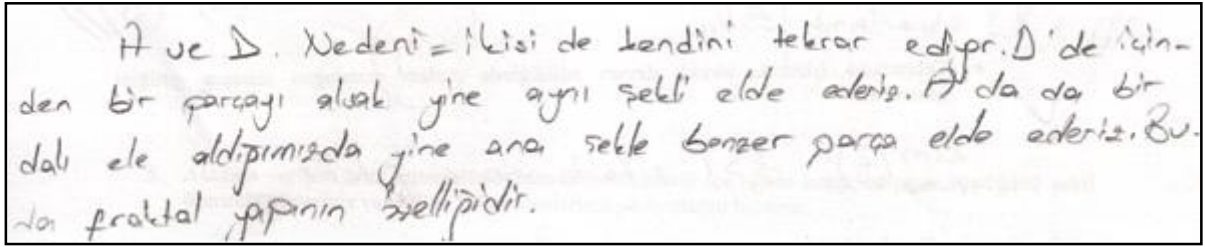 A ve D. Nedeni = ikisi de kendini tekrar ediyor. D'de için-
den bir parçayı alsak yine aynı şekli elde ederiz. A da da bir
dalı ele aldığımızda yine ana şekle benzer parça elde ederiz. Bu-
da fraktal yapının özelliğidir.